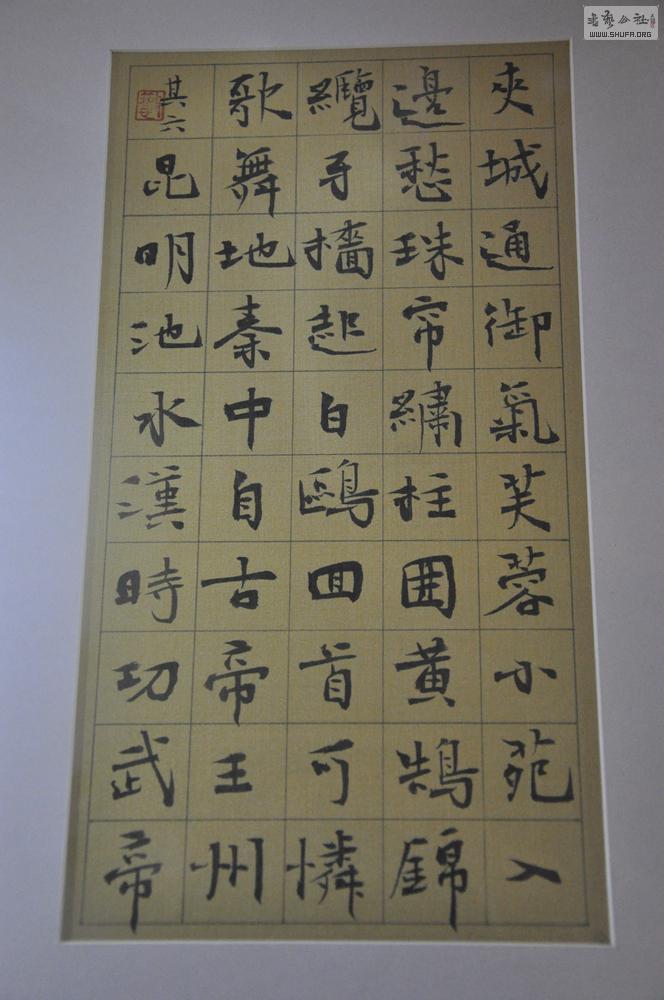 夾城通御氣芙蓉小苑入
邊愁珠帘繡柱囲黃鵠錦
纜牙檣起白鷗回首可憐
歌舞地秦中自古帝王州
其六
昆明池水漢時功武帝
書藝公社
WWW.SHUFA.ORG